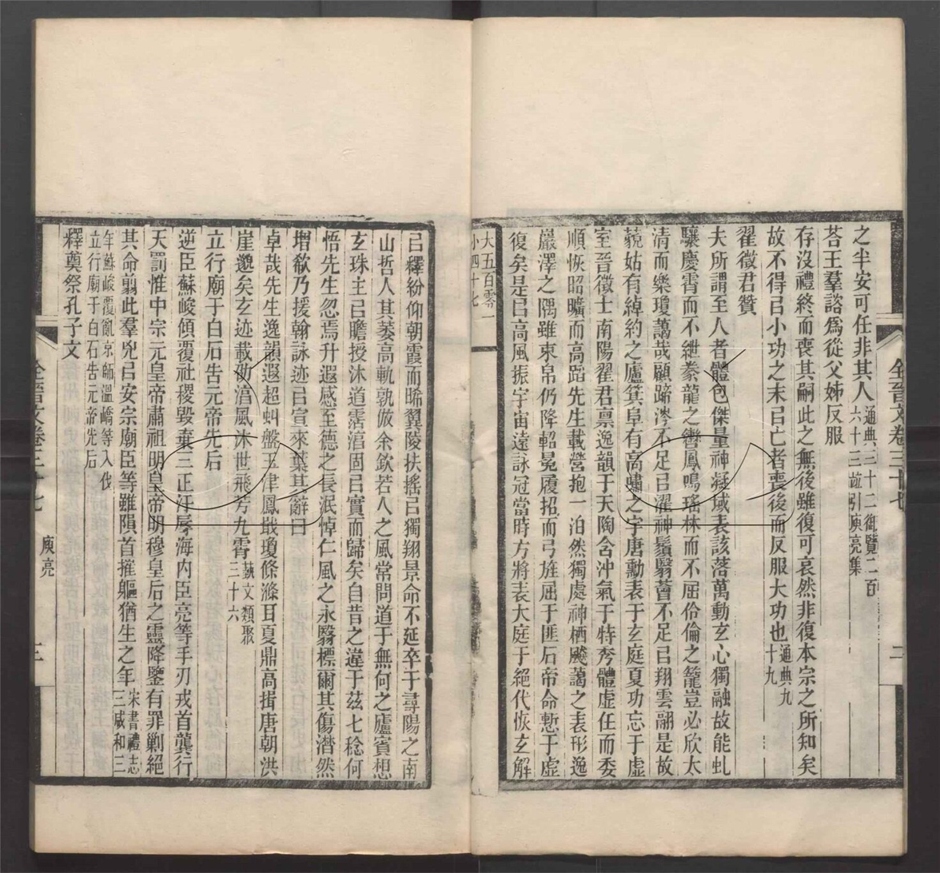 之半安可任非其人通典三十二御覽二百六十三竝引庾亮集
荅王羣諮爲從父姊反服
存沒禮終而喪其嗣此之無後雖復可哀然非復本宗之所知矣
故不得㠯小功之末㠯亡者喪後而反服大功也通典九十九
翟徵君贊
夫所謂至人者體包傑量神凝域表該落萬動玄心獨融故能虬
驤慶霄而不紲豢龍之轡鳳鳴瑤林而不屈伶倫之籠豈必欣太
清而樂瓊藹哉顧蹄涔不足㠯濯神鬚翳薈不足㠯翔雲翮是故
藐姑有綽約之廬箕阜有高嘯之宇唐勳表于玄庭夏功忘于虛
室晉徵士南陽翟君禀逸韻于天陶含沖氣于特秀體虛任而委
順恢昭曠而高蹈先生載營抱一泊然獨處神栖飈藹之表形逸
巖澤之隅雖束帛仍降軺冕屢招而弓旌屈于匪石帝命慙于虛
復矣是㠯高風振宇宙遠詠冠當時方將表大庭于絕代恢玄解
大五百零一
小四十七
全晉文卷三十七
二
㠯釋紛仰朝霞而晞翼陵扶搖㠯獨翔景命不延卒于尋陽之南
山哲人其萎高軌孰倣余欽若人之風常問道于無何之廬賓想
玄珠主㠯瞻授沐道霑滛固㠯實而歸矣自昔之違于茲七稔何
悟先生忽焉升遐感至德之長泯悼仁風之永翳標爾其傷潸然
增欷乃援翰詠迹㠯宣來葉其辭曰
卓哉先生逸韻遐超虯盤玉津鳳戢瓊條滌耳夏鼎高揖唐朝洪
崖邈矣玄迹載劭滛風沐世飛芳九霄藝文類聚三十六
立行廟于白石告元帝先后
逆臣蘇峻傾覆社稷毀棄三正汙辱海內臣亮等手刃戎首龔行
天罰惟中宗元皇帝肅祖明皇帝明穆皇后之靈降鑒有罪剿絕
其命翦此羣兇㠯安宗廟臣等雖隕首摧軀猶生之年宋書禮志三咸和三
年蘇峻覆亂京師溫嶠等入伐
立行廟于白石告元帝先后
釋奠祭孔子文
全晉文卷三十七
庾亮
三